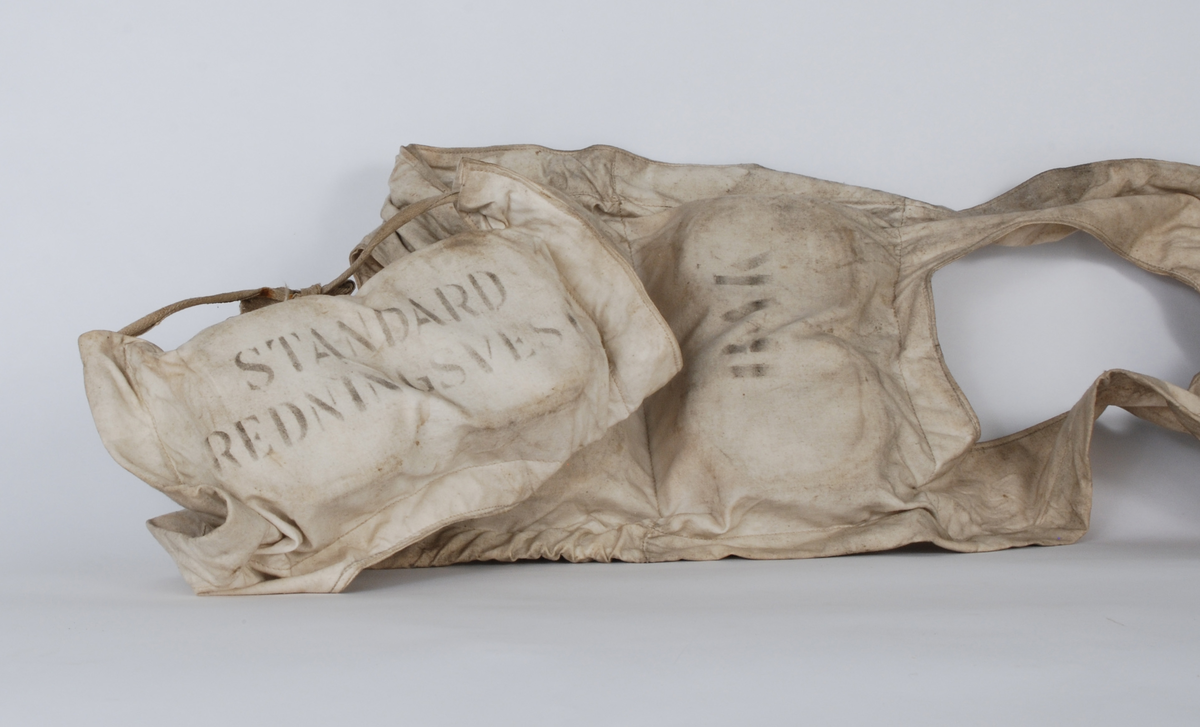 STANDARD
REDNINGSVEST